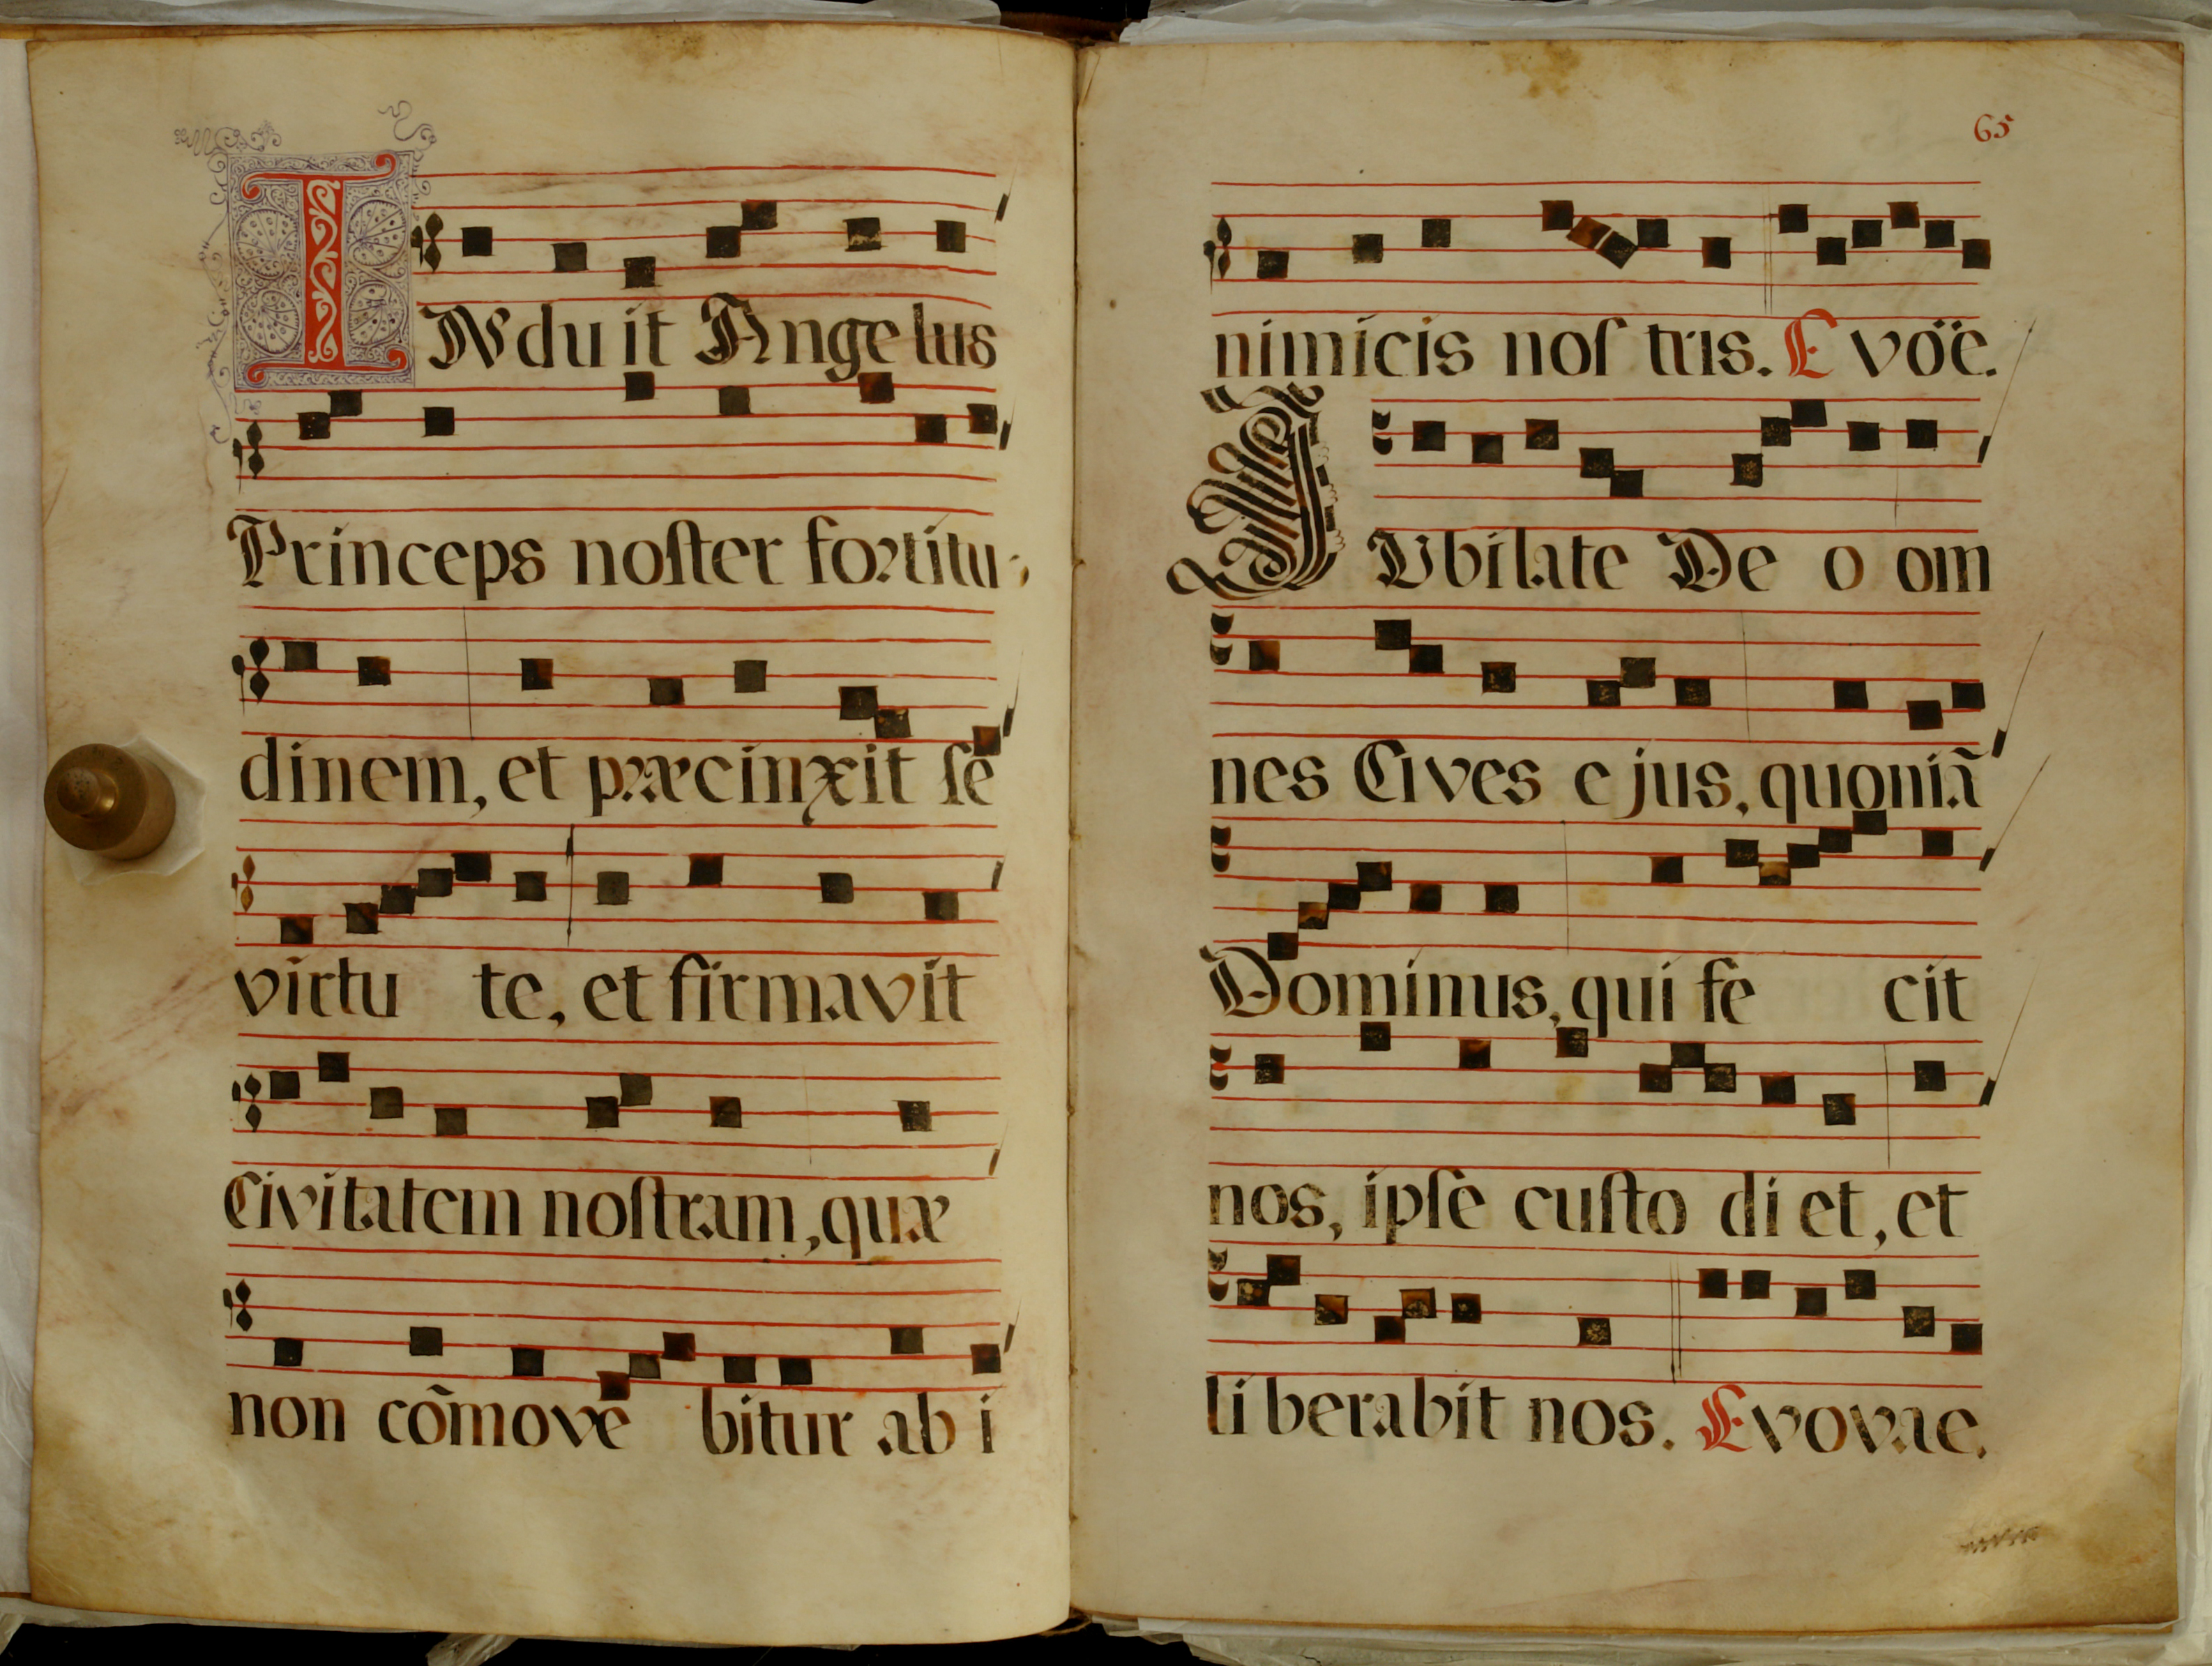 INduit Angelus
Princeps noſter fortitu-
dinem, et præcinxit ſe
virtu te, et firmavit
Civitatem noſtram, quæ
non cõmove bitur ab i
65
nimicis noſ tris. E vöë.
JUbilate De o om
nes Cives ejus, quoniã
Dominus, qui fe cit
nos, ipſe cuſto di et, et
li berabit nos. Evovae.